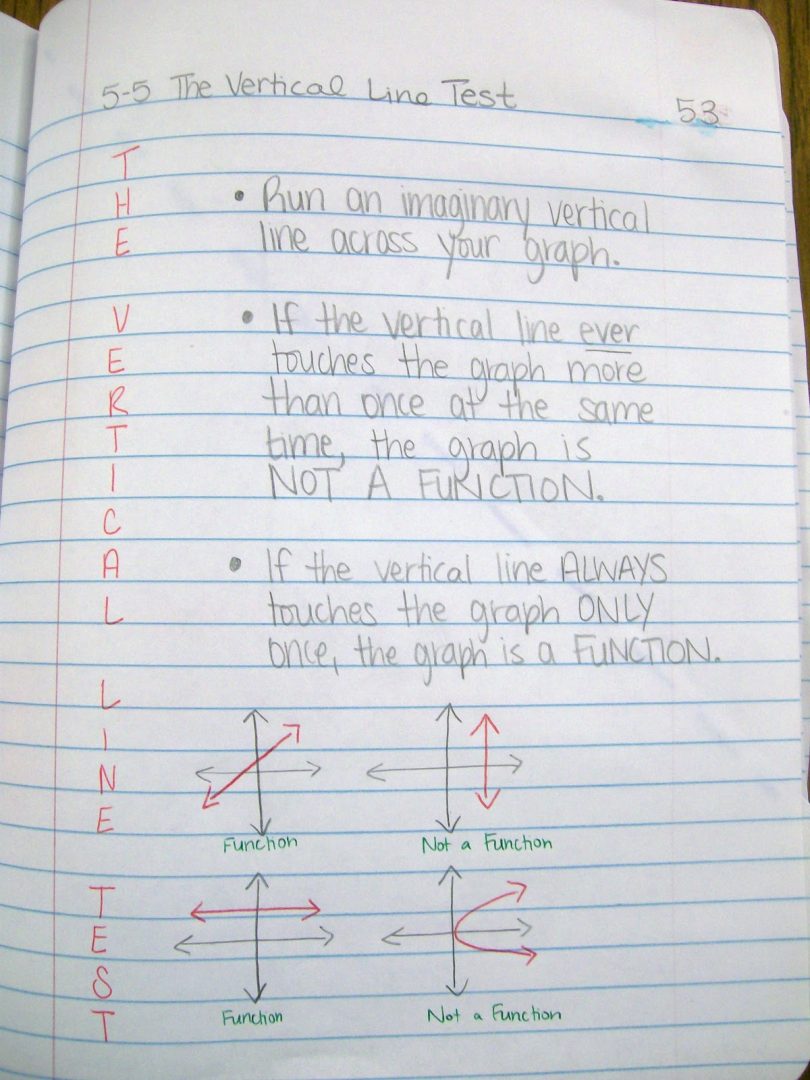 5-5 The Vertical Line Test
53
THE VERTICAL LINE TEST
• Run an imaginary vertical
line across your graph.
• If the vertical line ever
touches the graph more
than once at the same
time, the graph is
NOT A FUNCTION.
• If the vertical line ALWAYS
touches the graph ONLY
once, the graph is a FUNCTION.
Function
Not a Function
Function
Not a Function